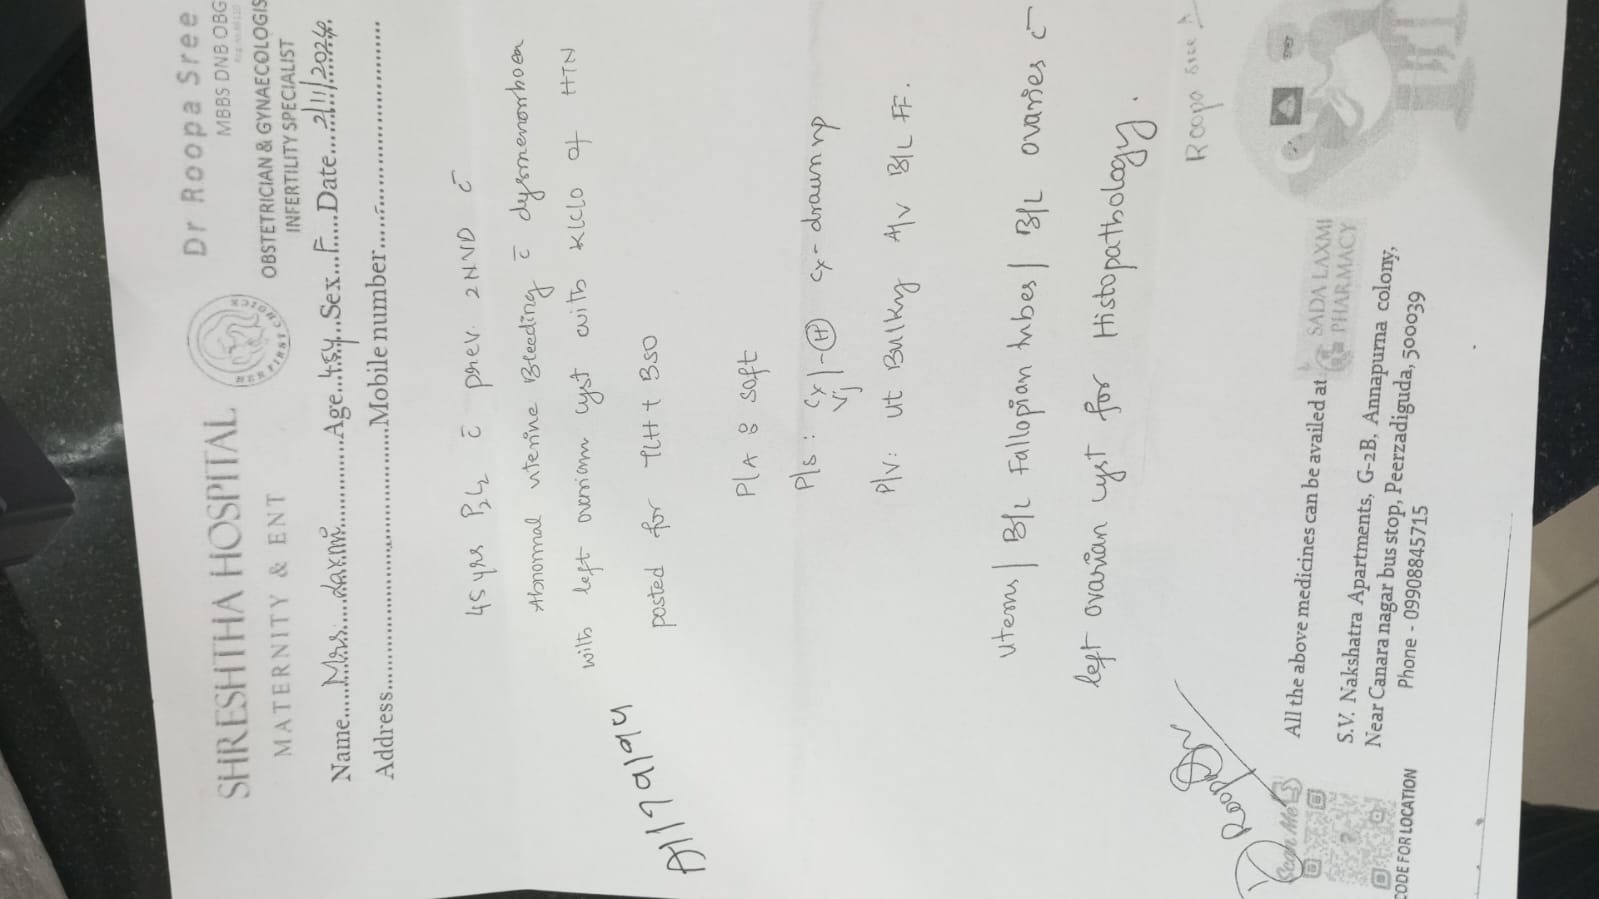 SHRESHTHA HOSPITAL
MATERNITY & ENT
HER FIRST CHOICE
Dr Roopa Sree
MBBS DNB OBG
OBSTETRICIAN & GYNAECOLOGIS
INFERTILITY SPECIALIST
Name....Mrs. Laxmi...............Age..45y..Sex...F....Date...2/11/2024.
Address......................................Mobile number..............................
45 yrs P2L2 c̄ prev. 2NVD c̄
Abnormal uterine Bleeding c̄ dysmenorrhoea
with left ovarian cyst with K/C/O of HTN
posted for TLH + BSO
A1179194
P/A : soft
P/S : Cx/V - (H) Cx - drawn up
P/V: Ut Bulky A/V B/L FF.
Uterus / B/L Fallopian tubes / B/L ovaries c̄
left ovarian cyst for Histopathology.
Dr Roopa
Roopa Sree
Scan Me
CODE FOR LOCATION
All the above medicines can be availed at SADA LAXMI PHARMACY
S.V. Nakshatra Apartments, G-2B, Annapurna colony,
Near Canara nagar bus stop, Peerzadiguda, 500039
Phone - 09908845715